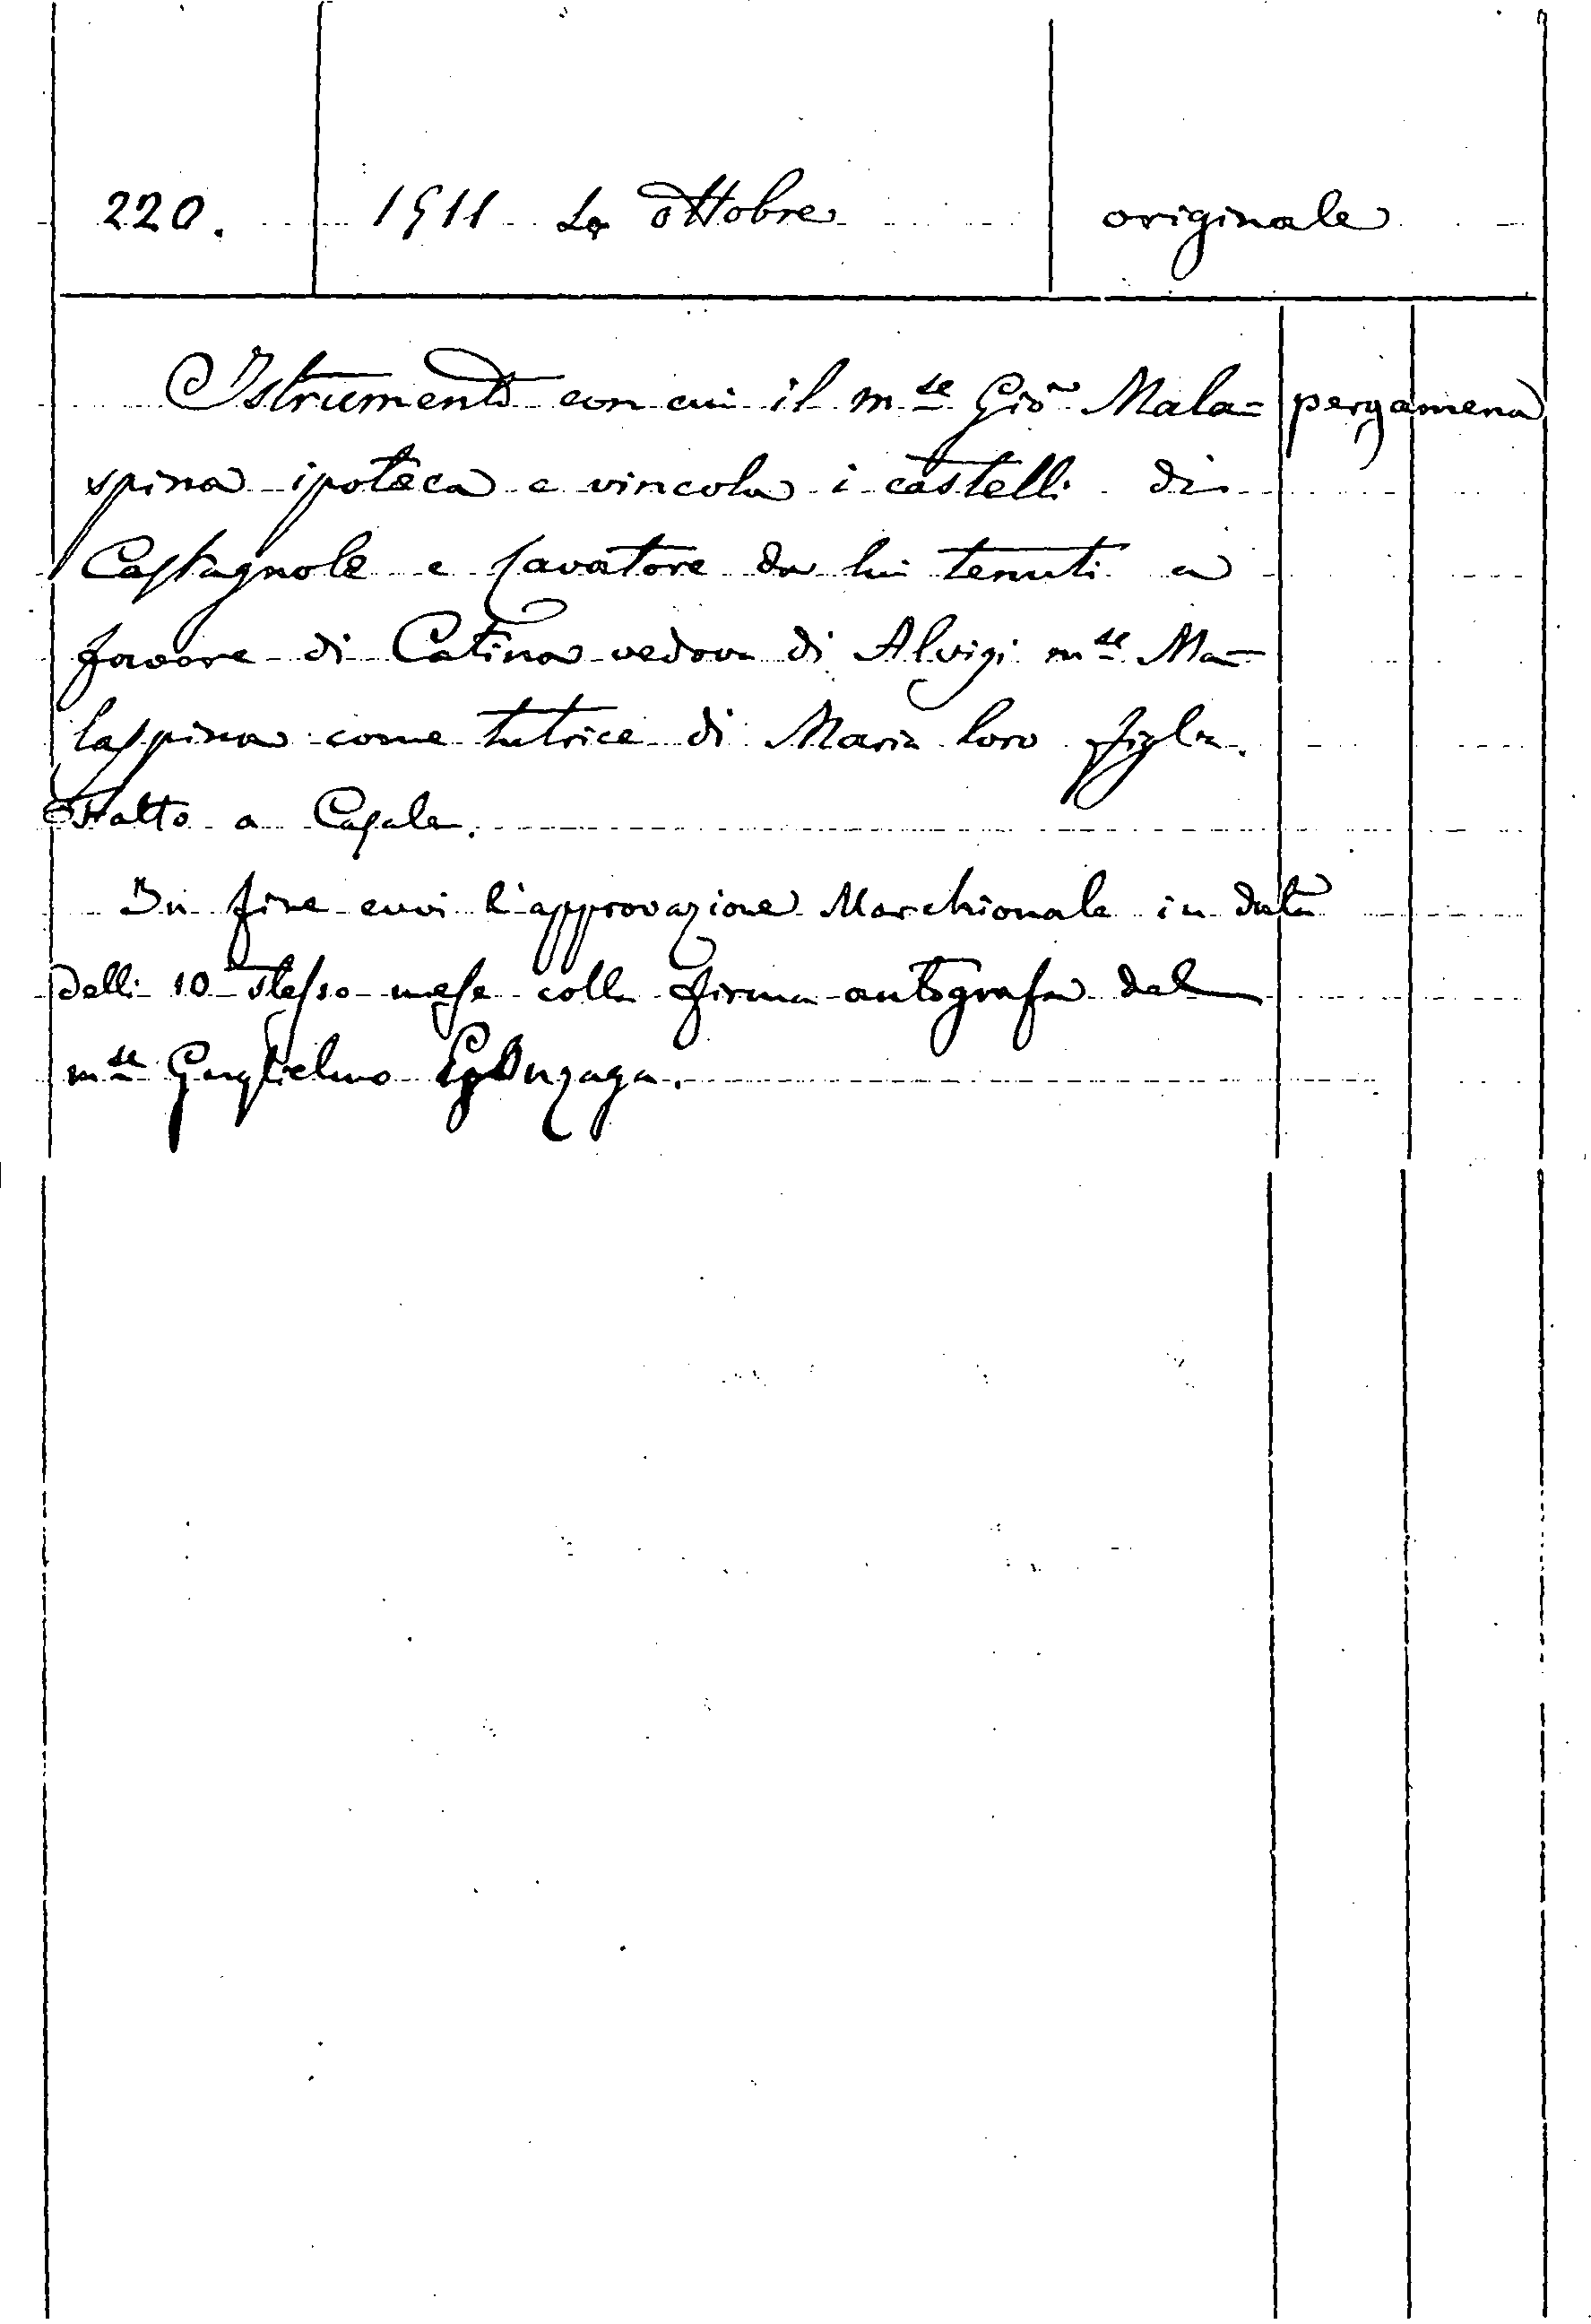 220. 1511 ottobre originale
Istrumento con cui il m.se Gio Mala= pergamena
spina ipoteca e vincola i castelli di
Castagnole e Cavatore da lui tenuti a
favore di Catina vedova di Alvigi m.se Ma-
laspina come tutrice di Maria loro figlia.
Fatto a Casale.
In fine evvi l'approvazione Marchionale in data
delli 10 stesso mese colla firma autografa del
m.se Guglielmo